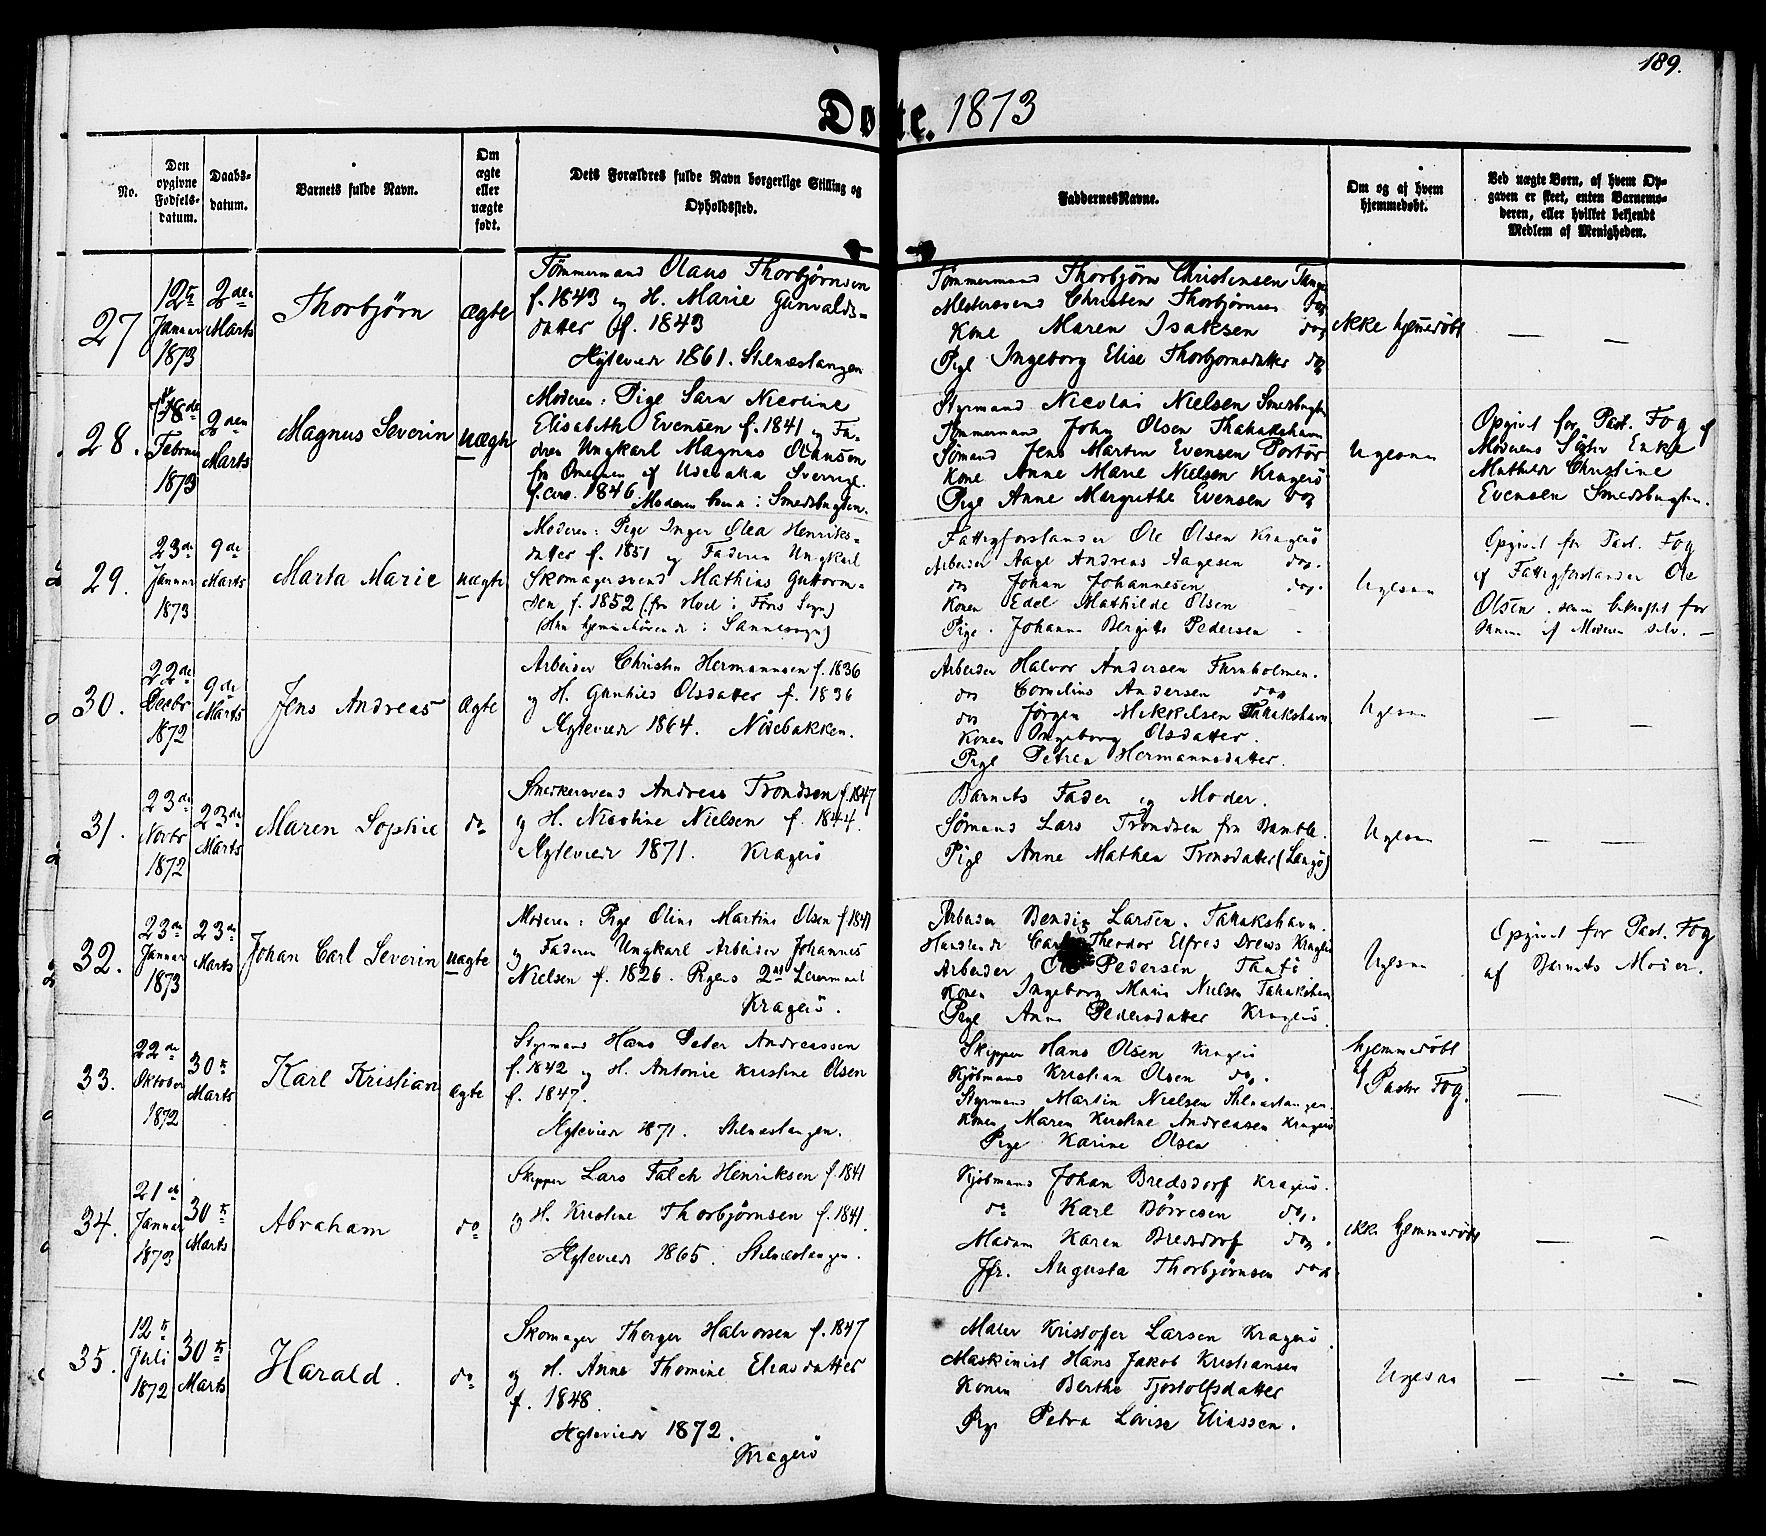 189.
Døbte. 1873
No.
Den opgivne Fødsels-datum.
Daabs-datum.
Barnets fulde Navn.
Om ægte eller uægte født.
Dets Forældres fulde Navn borgerlige Stilling og Opholdssted.
Faddernes Navne.
Om og af hvem hjemmedøbt.
Ved uægte Børn, af hvem Op-gaven er skeet, enten Barnemo-deren, eller hvilket bekjendt Medlem af Menigheden.
27
12te Januar 1873
2den Marts
Thorbjørn
ægte
Tømmermand Olaus Thorbjørnsen
f. 1843 og H. Marie Gunvalds-
datter f. 1843
Ægteviede 1861. Stilnæstangen
Tømmermand Thorbjørn Christensen Tangen
Christen Thorbjørnsen do
Kone Maren Isaksen do
Pige Ingeborg Elise Thorbjørnsdatter do
ikke hjemmedøbt
— —
28.
18de Februar 1873
2den Marts
Magnus Severin
uægte
Moderen: Pige Sara Nicoline
Elisabeth Evensen f. 1841 og Fa-
deren Ungkarl Magnus
fra Omegnen af Udevalla Sverrige.
f. circa 1846. Moderen boende i Smedsbugten.
Styrmand Nicolai Nielsen Smedsbugten
Tømmermand John Olsen
Sømand Jens Martin Evensen Portør
Kone Anne Marie Nielsen Kragerö
Pige Anne Margrethe Evensen do
Ligesaa
Opgivet for Past. Fog af
Moderens Søster Enke
Mathilde Christine
Evensen Smedsbugten.
29.
23de Januar 1873
9de Marts
Marta Marie
uægte
Moderen: Pige Inger Olea Henriks-
datter f. 1851 og Faderen Ungkarl
Skomagersvend Mathias Guttorm-
sen f. 1852 (fra
(Han hjemmehörende i Sannesogn)
Fattigforstander Ole Olsen Kragerö
Arbeider Aage Andreas Aagesen do.
do Johan Johannesen do.
Konen Edel Mathilde Olsen —
Pige. Johanne Bergitte Pedersen —
Ligesaa
Opgivet for Past. Fog
af Fattigforstander Ole
Olsen. samt bekræftet for
samme af Moderen selv. —
30.
22de Decbr 1872
9de Marts
Jens Andreas
ægte
Arbeider Christen Hermannsen f. 1836
og H. Gunhild Olsdatter f. 1836
Ægteviede 1864. Nödebakken.
Arbeider Halvor Andersen Furuholmen.
do Cornelius Andersen do
do Jörgen Mikkelsen
Konen Ingeborg Olsdatter.
Pige Petrea Hermannsdatter.
Ligesaa
— —
31.
23de Novbr 1872
23de Marts
Maren Sophie
do
Snedkersvend Andreas Trondsen f. 1847
og H. Nicoline Nielsen f. 1844.
Ægteviede 1871. Kragerö
Barnets Fader og Moder.
Sømand Lars Trondsen fra Bamble.
Pige Anne Mathea Tronsdatter (Langö)
Ligesaa
— —
32.
23de Januar 1873
23de Marts
Johan Carl Severin
uægte
Moderen: Pige Oline Martine Olsen f. 1841
og Faderen Ungkarl Arbeider Johannes
Nielsen f. 1826. Pigens 2det Leiermaal
Kragerö.
Arbeider Bendix Larsen.
Handlende Carl Theodor Elfred Drews Kragerö
Arbeider Ole Pedersen
Konen Ingeborg Marie Nielsen
Pige Anne Pedersdatter Kragerö.
Ligesaa
Opgivet for Past. Fog
af Barnets Moder.
33.
22de Oktober 1872
30te Marts
Karl Kristian
ægte
Styrmand Hans Peter Andreassen
f. 1842 og H. Antonie Kristine Olsen
f. 1847.
Ægteviede 1871. Stilnæstangen.
Skipper Hans Olsen Kragerö
Kjöbmand Kristian Olsen do.
Styrmand Martin Nielsen Stilnæstangen.
Konen Maren Kirstine Andreasen Kragerö
Pige Karine Olsen
hjemmedöbt
af Pastor Fog.
— —
34.
21de Januar 1873
30te Marts
Abraham
do
Skipper Lars Falck Henriksen f. 1841
og H. Kristine Thorbjörnsen f. 1841.
Ægteviede 1865. Stilnæstangen.
Kjöbmand Johan Bredsdorf Kragerö.
do Karl Börresen do.
Madam Karen Bredsdorf do.
Jfr. Augusta Thorbjörnsen do
ikke hjemmedöbt
— —
35.
12te Juli 1872
30te Marts
Harald.
do
Skomager Therger Halvorsen f. 1847
og H. Anne Thomine Eliasdatter
f. 1848.
Ægteviede 1872.
Kragerö
Maler Kristofer Larsen Kragerö.
Maskinist Hans Jakob Kristiansen
Konen Berthe Tjostolfsdatter
Pige Petra Lovise Eliassen.
Ligesaa
— — —